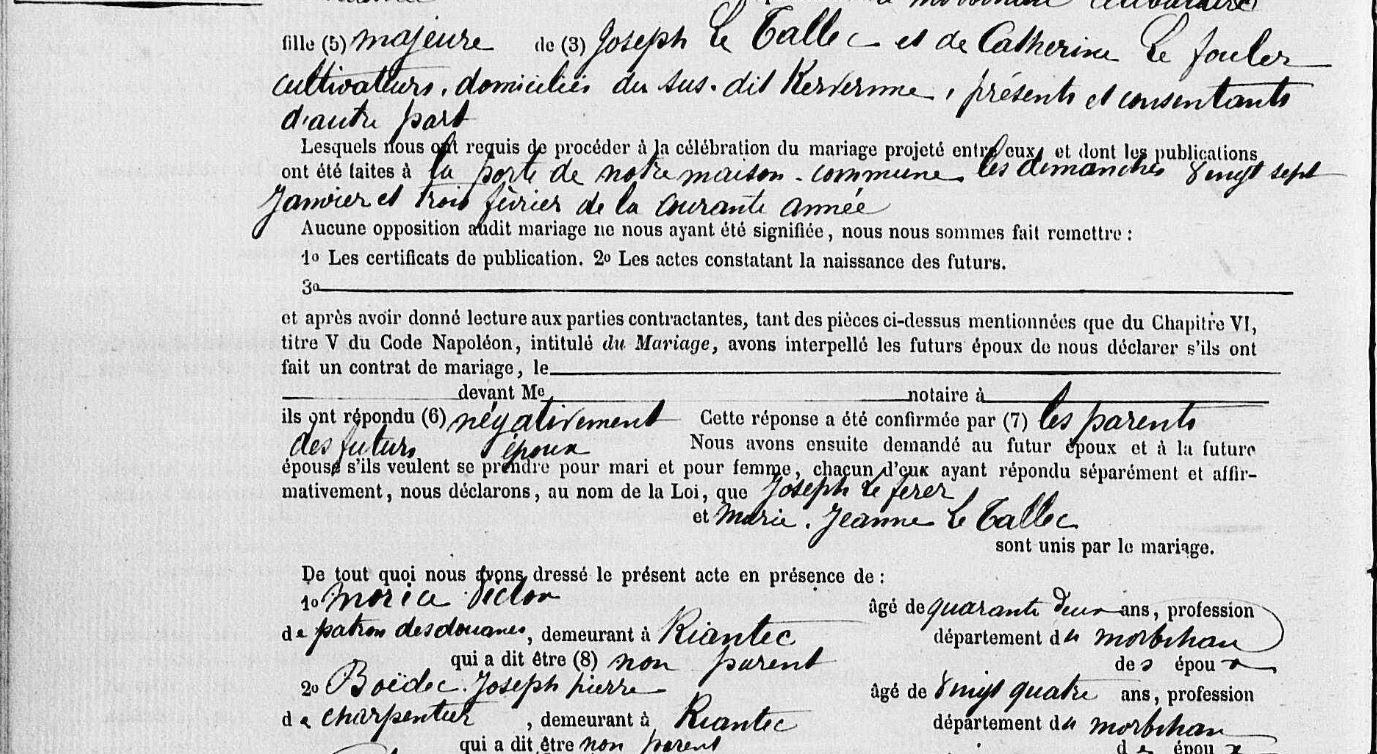 fille (5) majeure de (3) Joseph Le Tallec et de Catherine Le fouler
cultivateurs, domiciliés du sus-dit Kerverme, présents et consentants
d'autre part
Lesquels nous ont requis de procéder à la célébration du mariage projeté entre eux, et dont les publications
ont été faites à la porte de notre maison-commune les dimanches vingt sept
Janvier et trois fèvrier de la courante année
Aucune opposition audit mariage ne nous ayant été signifiée, nous nous sommes fait remettre :
1o Les certificats de publication. 2o Les actes constatant la naissance des futurs.
3o
et après avoir donné lecture aux parties contractantes, tant des pièces ci-dessus mentionnées que du Chapitre VI,
titre V du Code Napoléon, intitulé du Mariage, avons interpellé les futurs époux de nous déclarer s'ils ont
fait un contrat de mariage, le
devant Me notaire à
ils ont répondu (6) négativement Cette réponse a été confirmée par (7) les parents
des futurs époux Nous avons ensuite demandé au futur époux et à la future
épouse s'ils veulent se prendre pour mari et pour femme, chacun d'eux ayant répondu séparément et affir-
mativement, nous déclarons, au nom de la Loi, que Joseph Le ferer
et Marie-Jeanne Le Tallec
sont unis par le mariage.
De tout quoi nous avons dressé le présent acte en présence de :
1o Morice Victor âgé de quarante deux ans, profession
de patron des douanes, demeurant à Riantec département du morbihan
qui a dit être (8) non parent des époux
2o Boëdec Joseph pierre âgé de vingt quatre ans, profession
de charpentier, demeurant à Riantec département du morbihan
qui a dit être non parent d épou